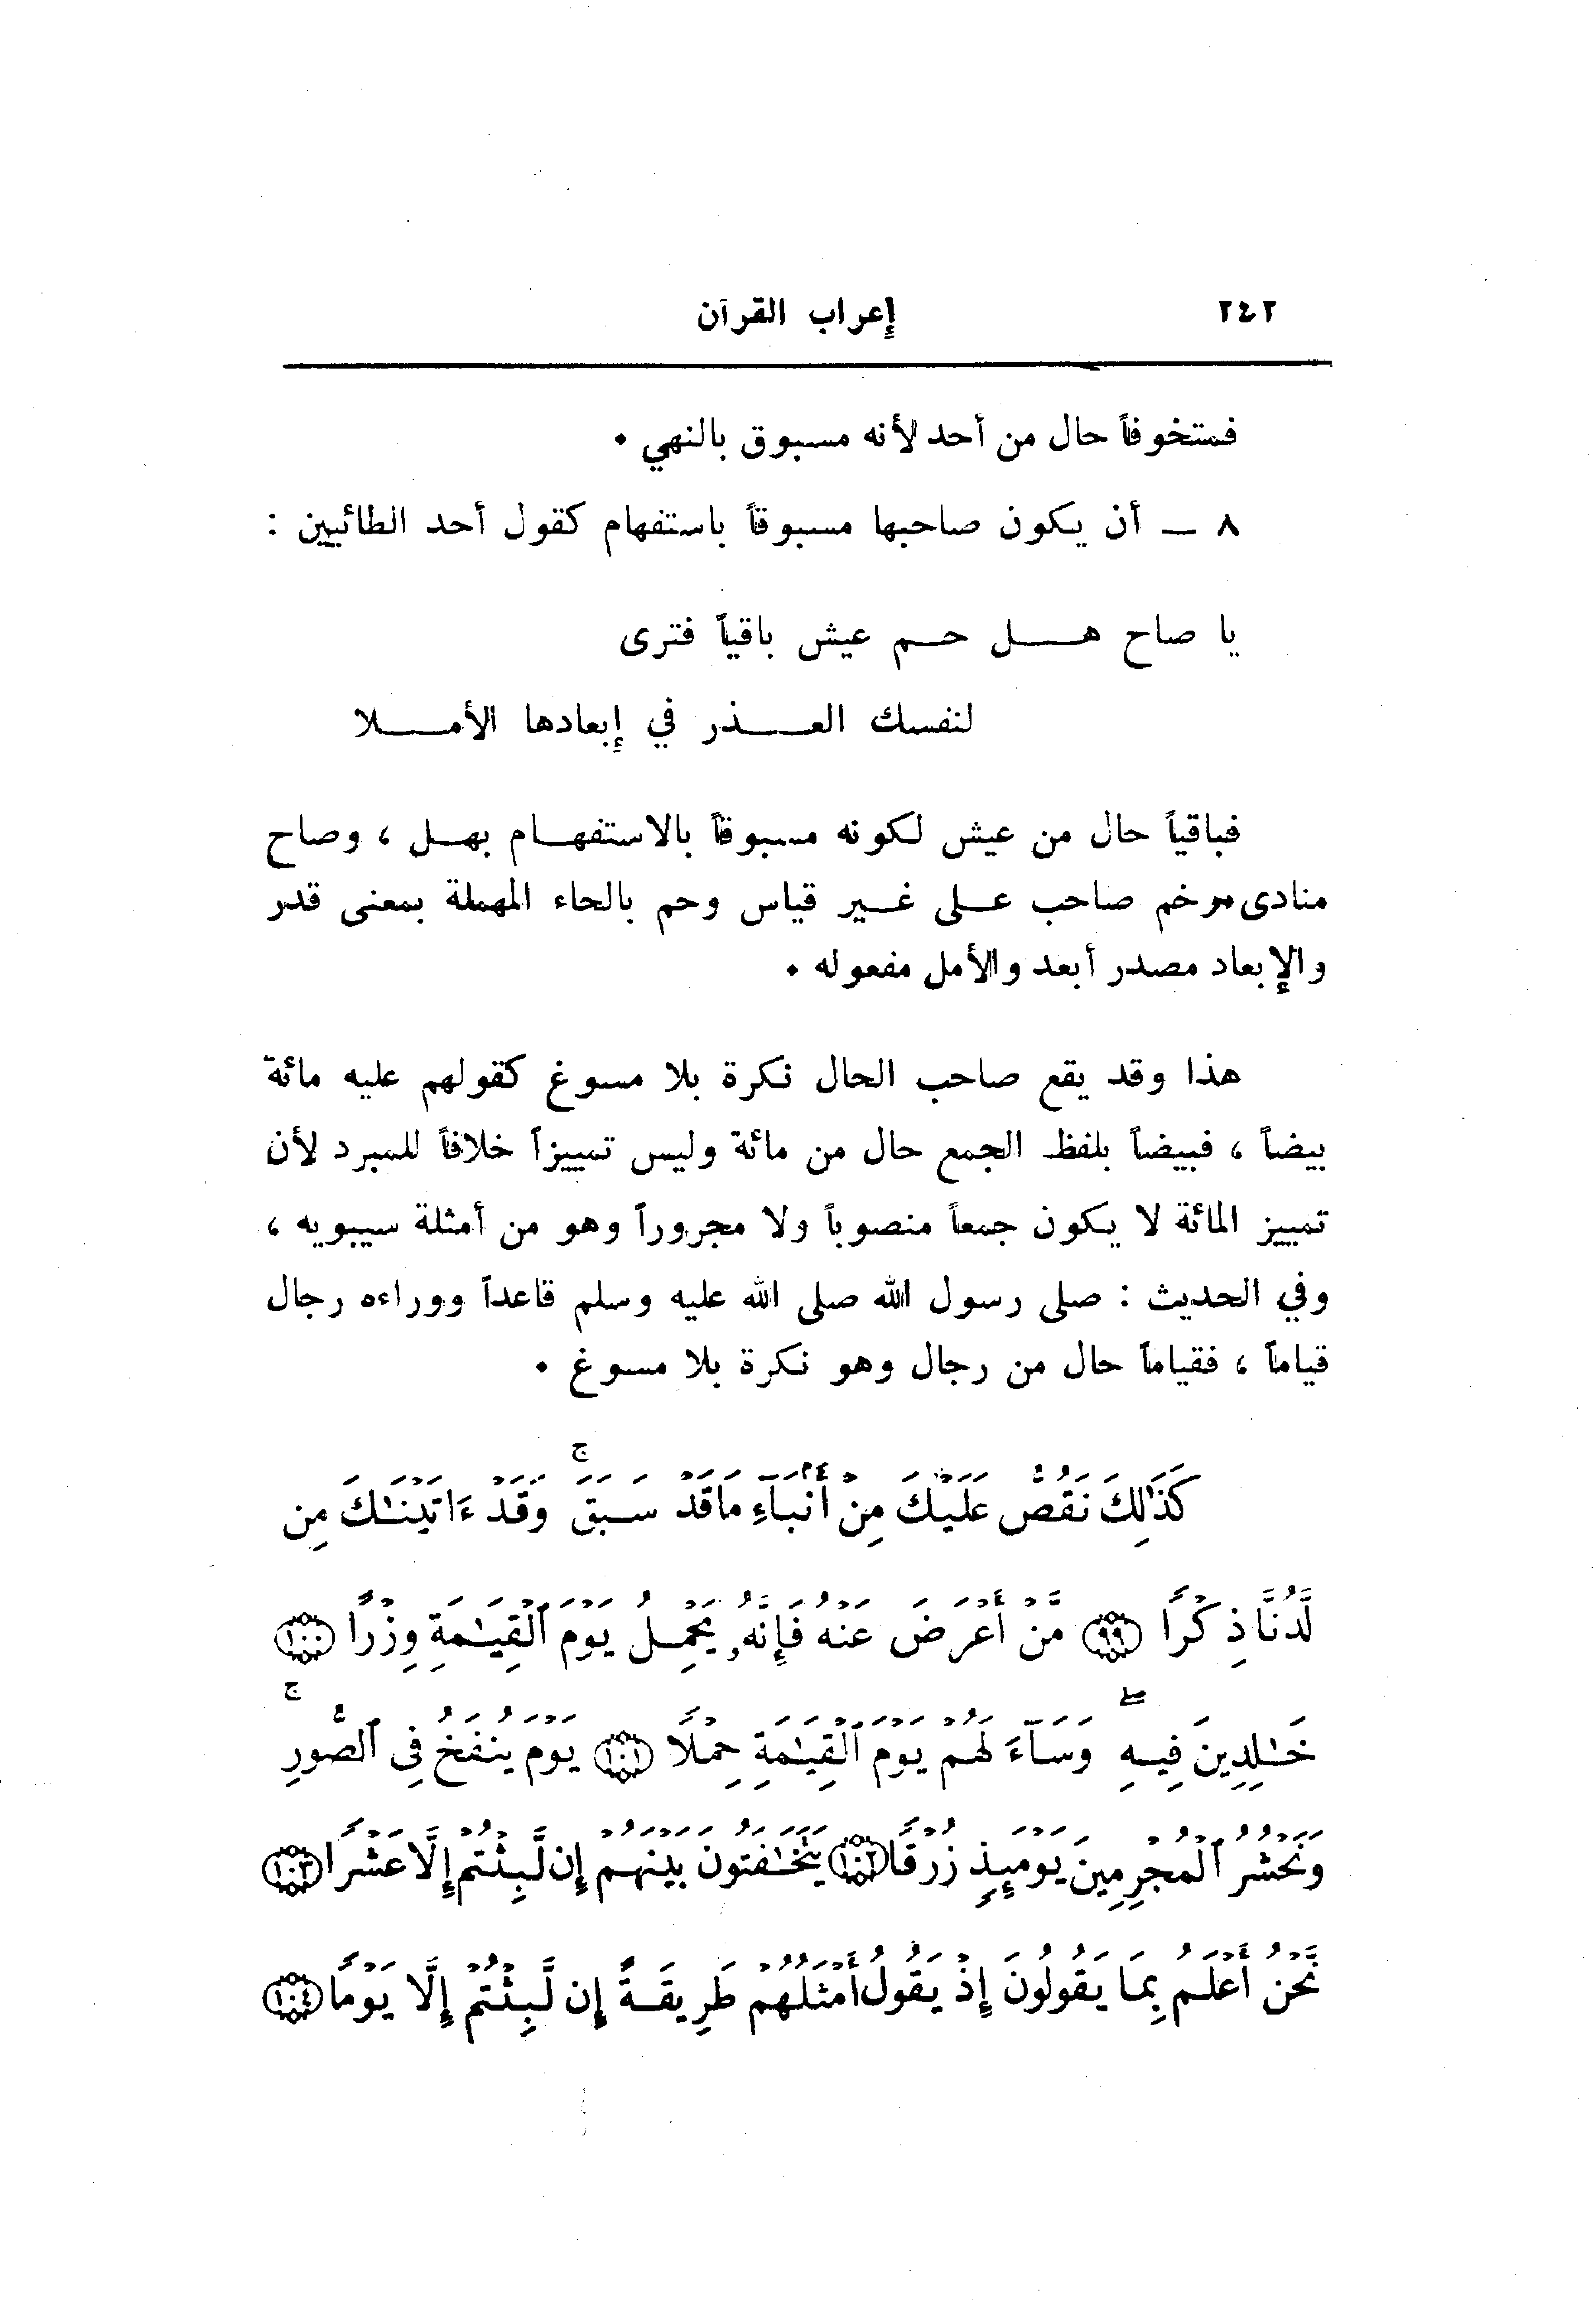 ٢٤٢ إعراب القرآن
فمتخوفاً حال من أحد لأنه مسبوق بالنهي .
٨ ــ أن يكون صاحبها مسبوقاً باستفهام كقول أحد الطائيين :
يا صاح هـل حـم عيش باقياً فترى
لنفسك العـذر في إبعادها الأمـلا
فباقياً حال من عيش لكونه مسبوقاً بالاستفهـام بهـل ، وصاح
منادى مرخم صاحب عـلى غـير قياس وحم بالحاء المهملة بمعنى قدر
والإبعاد مصدر أبعد والأمل مفعوله .
هذا وقد يقع صاحب الحال نكرة بلا مسوغ كقولهم عليه مائة
بيضاً ، فبيضاً بلفظ الجمع حال من مائة وليس تمييزاً خلافاً للمبرد لأن
تمييز المائة لا يكون جمعاً منصوباً ولا مجروراً وهو من أمثلة سيبويه ،
وفي الحديث : صلى رسول الله صلى الله عليه وسلم قاعداً ووراءه رجال
قياماً ، فقياماً حال من رجال وهو نكرة بلا مسوغ .
كَذَٰلِكَ نَقُصُّ عَلَيْكَ مِنْ أَنۢبَآءِ مَا قَدْ سَبَقَ ۚ وَقَدْ ءَاتَيْنَـٰكَ مِن
لَّدُنَّا ذِكْرًا ﴿٩٩﴾ مَّنْ أَعْرَضَ عَنْهُ فَإِنَّهُۥ يَحْمِلُ يَوْمَ ٱلْقِيَـٰمَةِ وِزْرًا ﴿١٠٠﴾
خَـٰلِدِينَ فِيهِ ۖ وَسَآءَ لَهُمْ يَوْمَ ٱلْقِيَـٰمَةِ حِمْلًا ﴿١٠١﴾ يَوْمَ يُنفَخُ فِى ٱلصُّورِ ۚ
وَنَحْشُرُ ٱلْمُجْرِمِينَ يَوْمَئِذٍ زُرْقًا ﴿١٠٢﴾ يَتَخَـٰفَتُونَ بَيْنَهُمْ إِن لَّبِثْتُمْ إِلَّا عَشْرًا ﴿١٠٣﴾
نَّحْنُ أَعْلَمُ بِمَا يَقُولُونَ إِذْ يَقُولُ أَمْثَلُهُمْ طَرِيقَةً إِن لَّبِثْتُمْ إِلَّا يَوْمًا ﴿١٠٤﴾